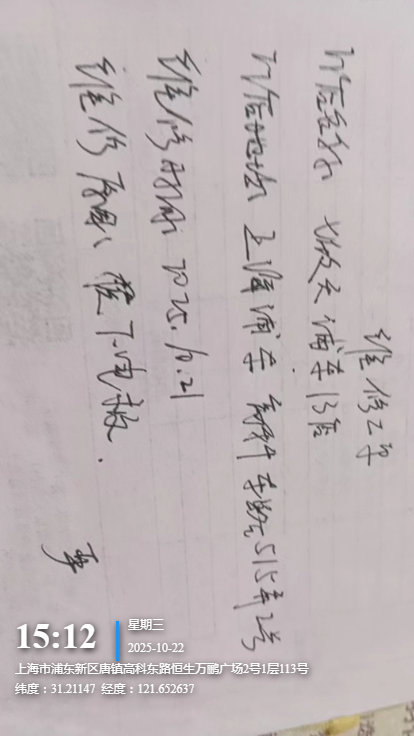 维修工单
门店名称 七欣天浦东13店
门店地址 上海浦东 高科东路515弄2号
维修时间 2025.10.21
维修 电板.
15:12
星期三
2025-10-22
上海市浦东新区唐镇高科东路恒生万鹏广场2号1层113号
纬度：31.21147 经度：121.652637